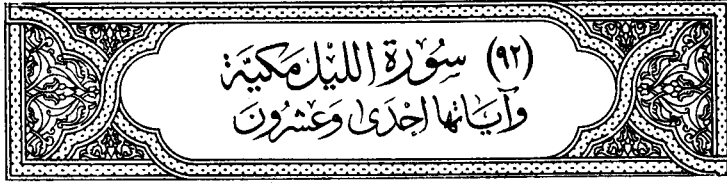 (٩٢) سُورَة اللَّيْل مَكِيَّة
وَآيَاتهَا إِحْدَى وَعَشْرُونَ